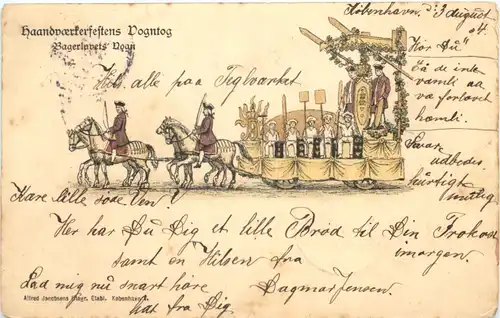 Haandværkerfestens Vogntog
Bagerlavets Vogn
København d: 3 august
04.
Hils alle paa Teglværket
Hør Du"
Svar
udbedes
hurtigst
Kære lille søde Ven!
Her har Du Dig et lille Brød til Din Frokost
imorgen.
samt en Hilsen fra
Dagmar Jensen.
Lad mig nu snart høre
lidt fra Dig
Alfred Jacobsens lithogr. Etabl. København.